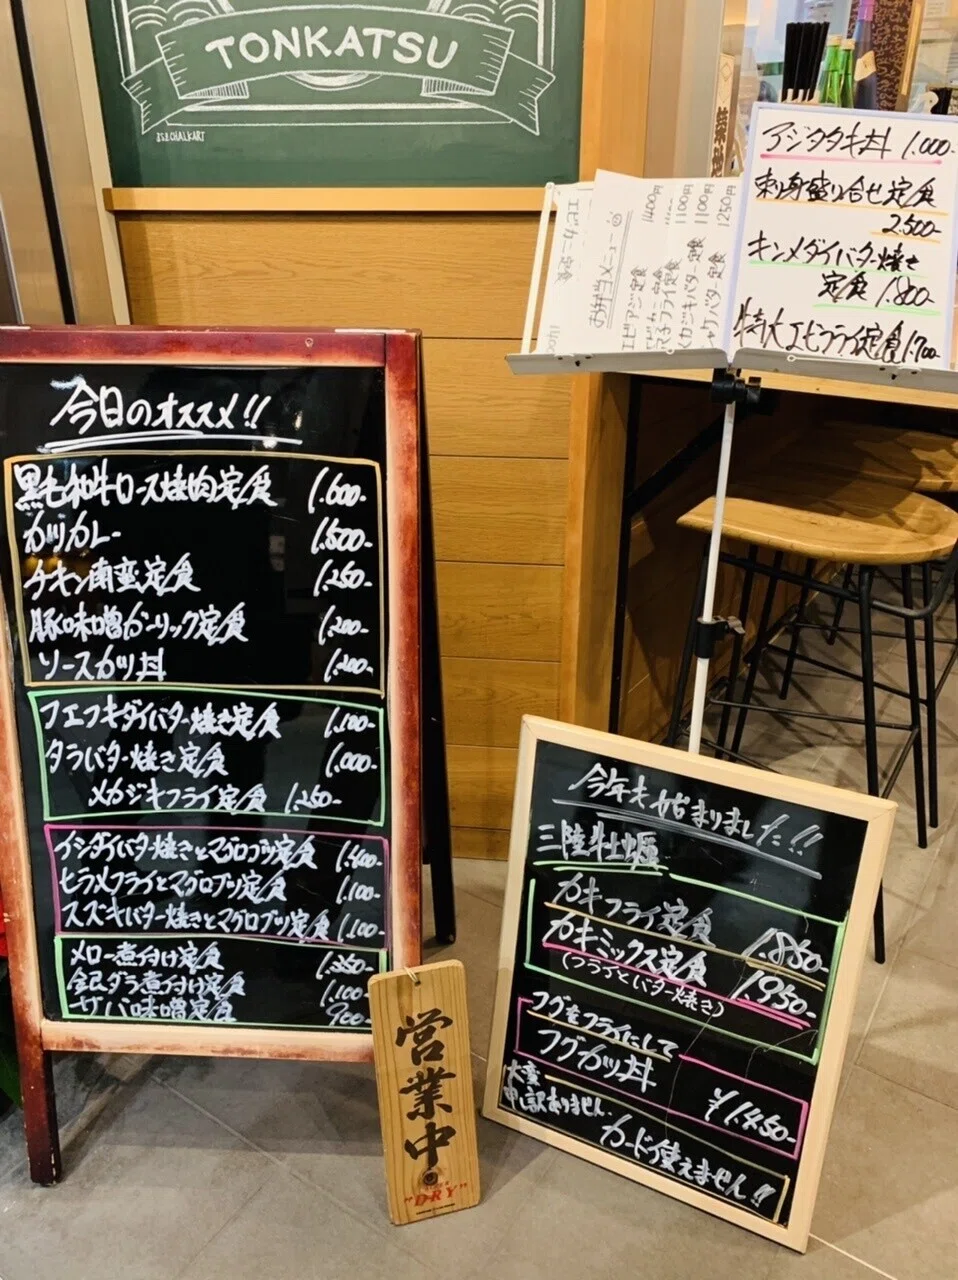 TONKATSU
アジタタキ丼 1.000-
刺身盛り合せ定食
2.500-
キンメダイバター焼き
定食 1.800-
特大エビフライ定食 1.700-
お弁当メニュー
エビアジ定食 1400円
メカジキバター定食 1100円
シャケバター定食 1250円
今日のオススメ!!
黒毛和牛ロース焼肉定食 1.600-
カツカレー 1.500-
チキン南蛮定食 1.250-
豚味噌ガーリック定食 1.200-
ソースカツ丼 1.200-
フエフキダイバター焼き定食 1.100-
タラバター焼き定食 1.000-
メカジキフライ定食 1.250-
イシダイバター焼きとマグロブツ定食 1.400-
ヒラメフライとマグロブツ定食 1.100-
スズキバター焼きとマグロブツ定食 1.100-
メロー煮付け定食 1.350-
銀ダラ煮付け定食 1.100-
サバ味噌定食 900-
営業中
"DRY"
今年も始まりました!!
三陸牡蠣
カキフライ定食 1.850-
カキミックス定食 1.950-
(フライとバター焼き)
フグをフライにして
フグカツ丼 ¥1.450-
大変
申し訳ありません
カード使えません!!